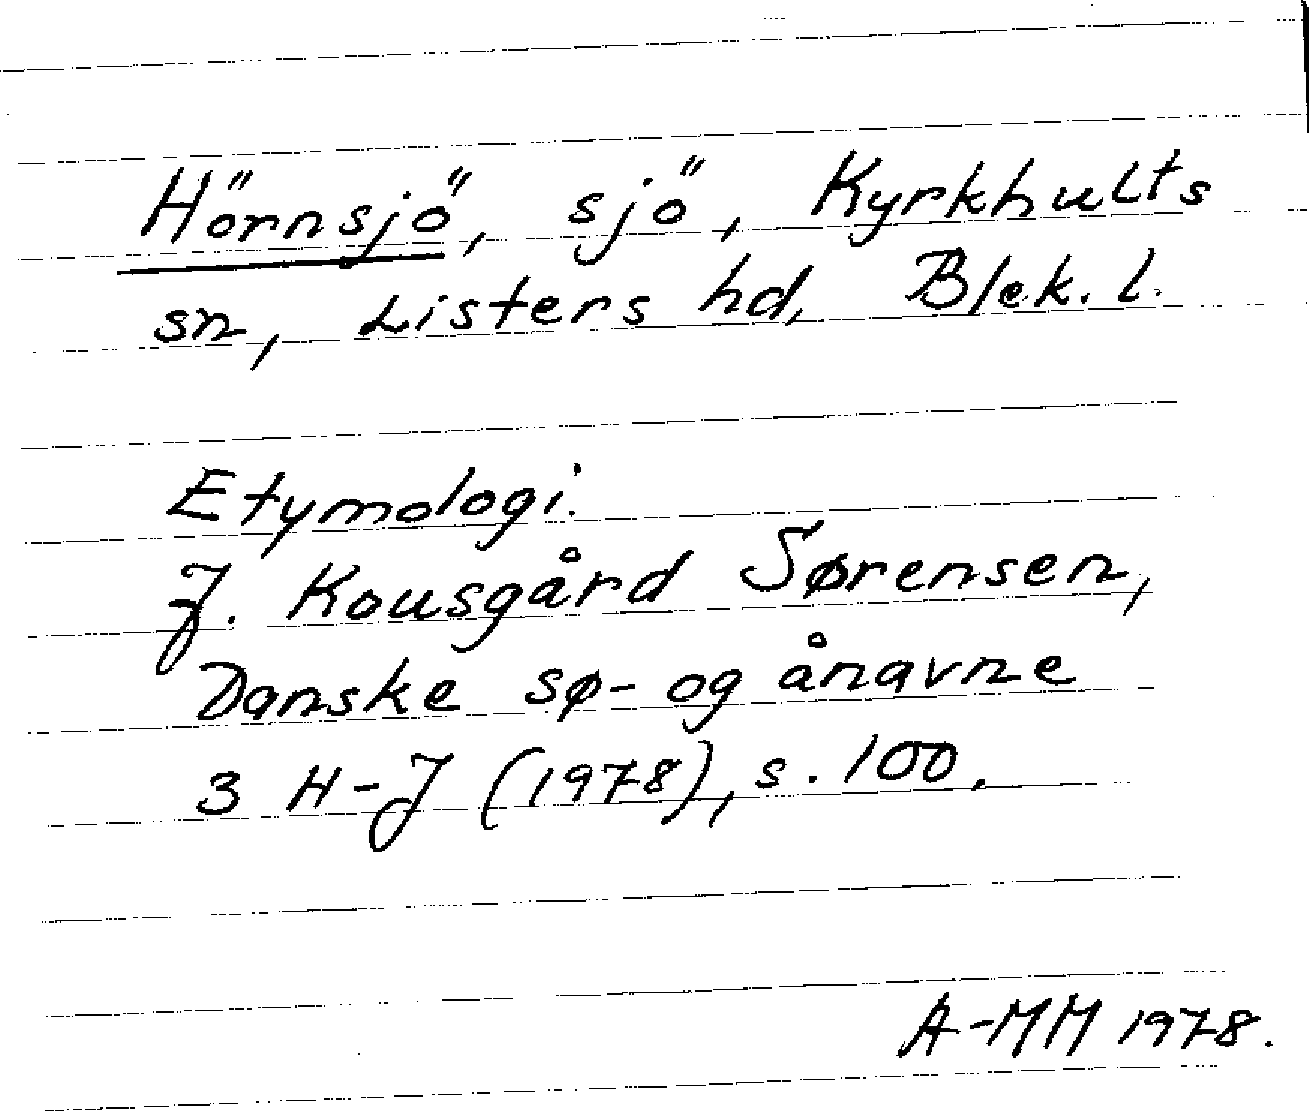 Hörnsjö, sjö, Kyrkhults
sn, Listers hd, Blek. l.
Etymologi:
J. Kousgård Sørensen,
Danske sø- og ånavne
3 H-J (1978), s. 100.
A-MM 1978.